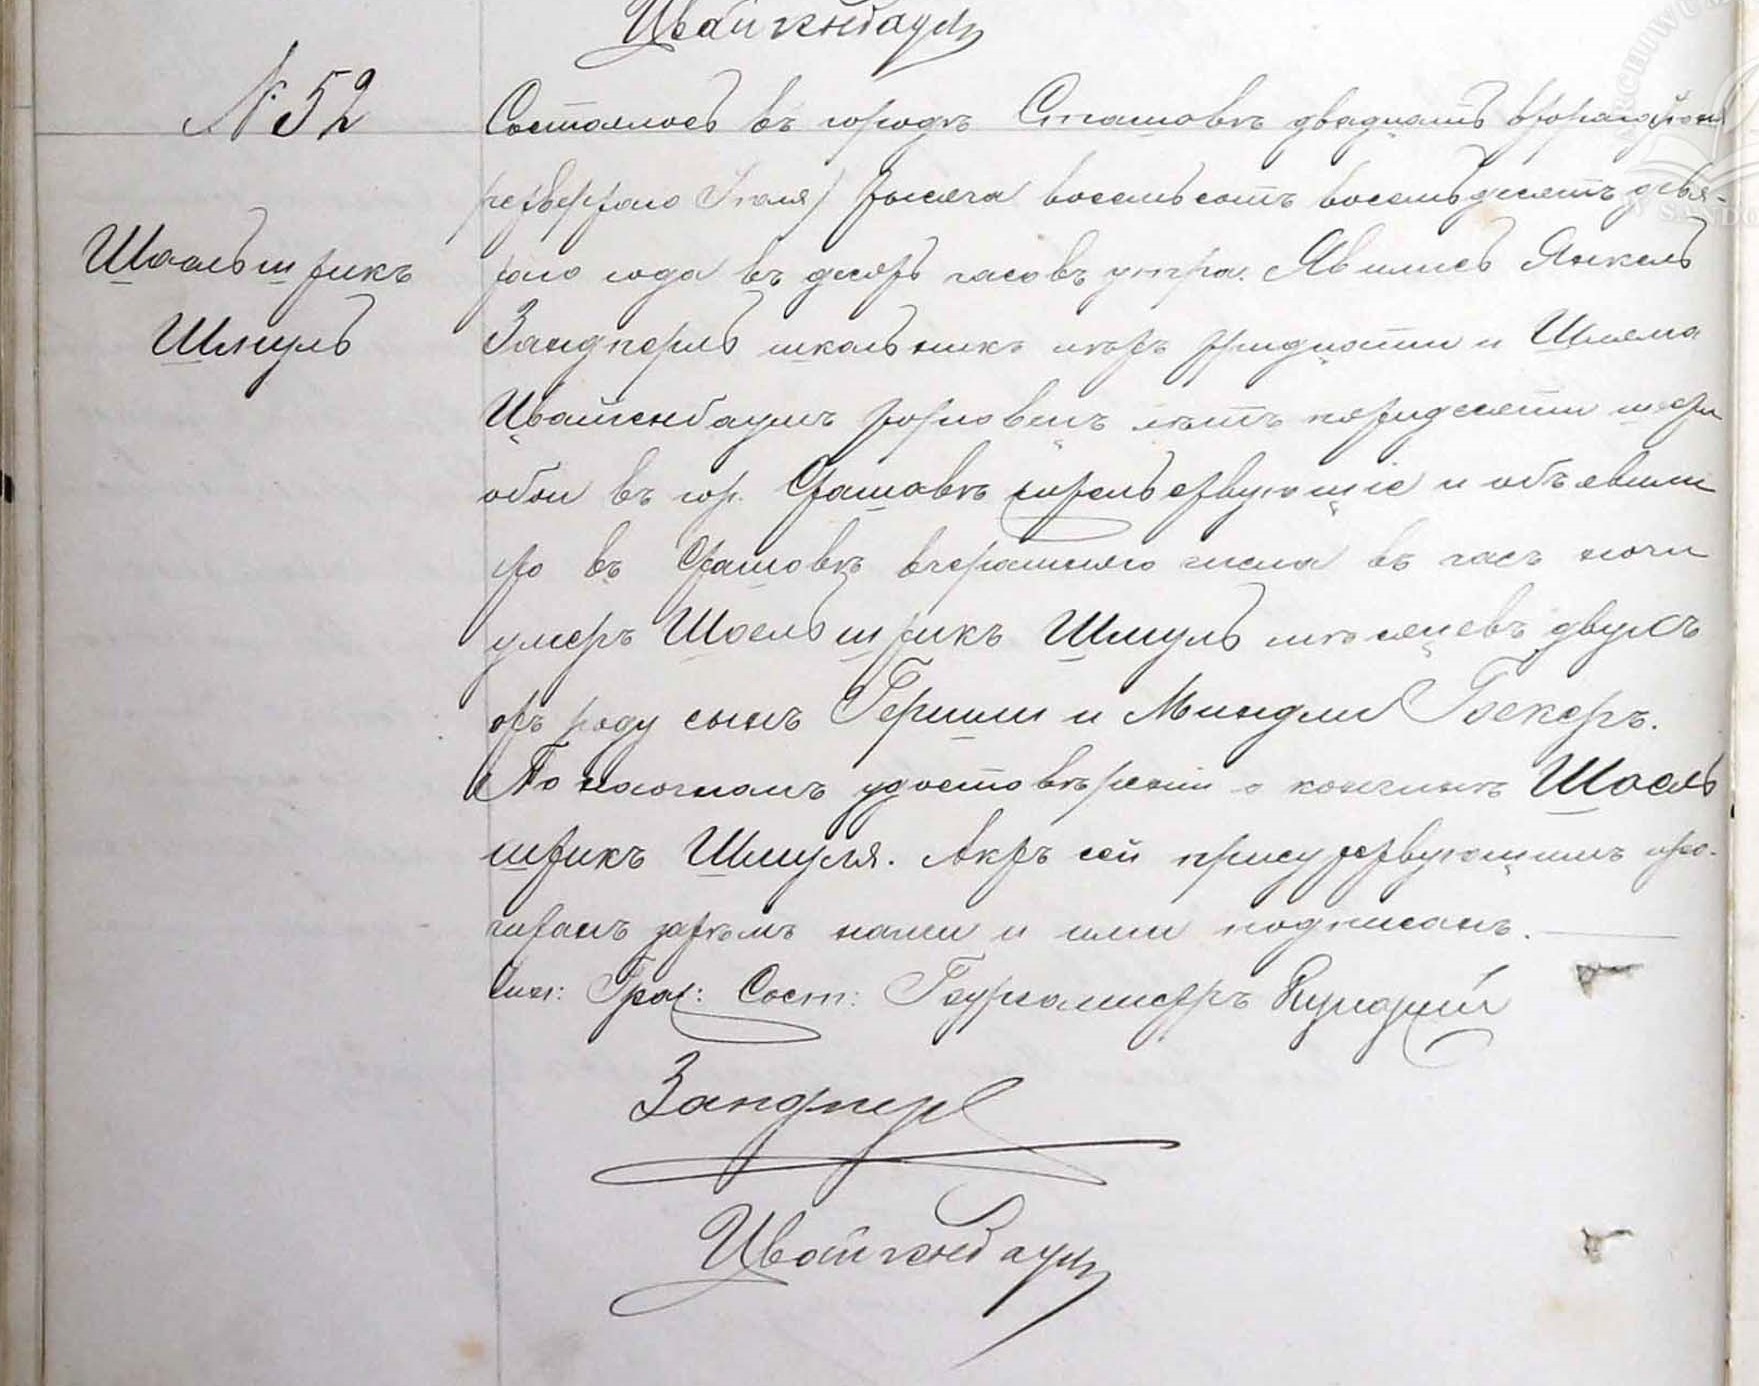 Цвайгенбаум
№ 52
Состоялось въ городѣ Сташовѣ двадцать второго Іюня
(четвертаго Іюля) тысяча восемьсотъ восемьдесятъ девя-
Шаальштикъ
таго года въ десять часовъ утра. Явились Янкель
Шмуль
Зандперль школьникъ лѣтъ тридцати и Шлема
Цвайгенбаумъ торговецъ лѣтъ пятидесяти шести
обои въ гор. Сташовѣ жительствующіе и объявили
что въ Сташовѣ вчерашняго числа въ часъ ночи
умеръ Шаельштикъ Шмуль мѣсяцевъ двухъ
отъ роду сынъ Гершли и Миндли Бекеръ.
По наочномъ удостовѣреніи о кончинѣ Шаель
штикъ Шмуля. Актъ сей присутствующимъ про-
читанъ затѣмъ нами и ими подписанъ.
Чин: Граж: Сост: Бургомистръ
Зандперл
Цвайгенбаум